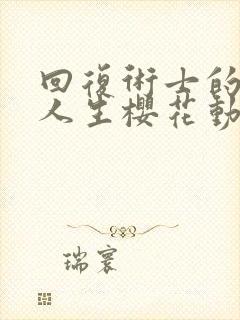 回復術士的
人生櫻花動
瑞寰